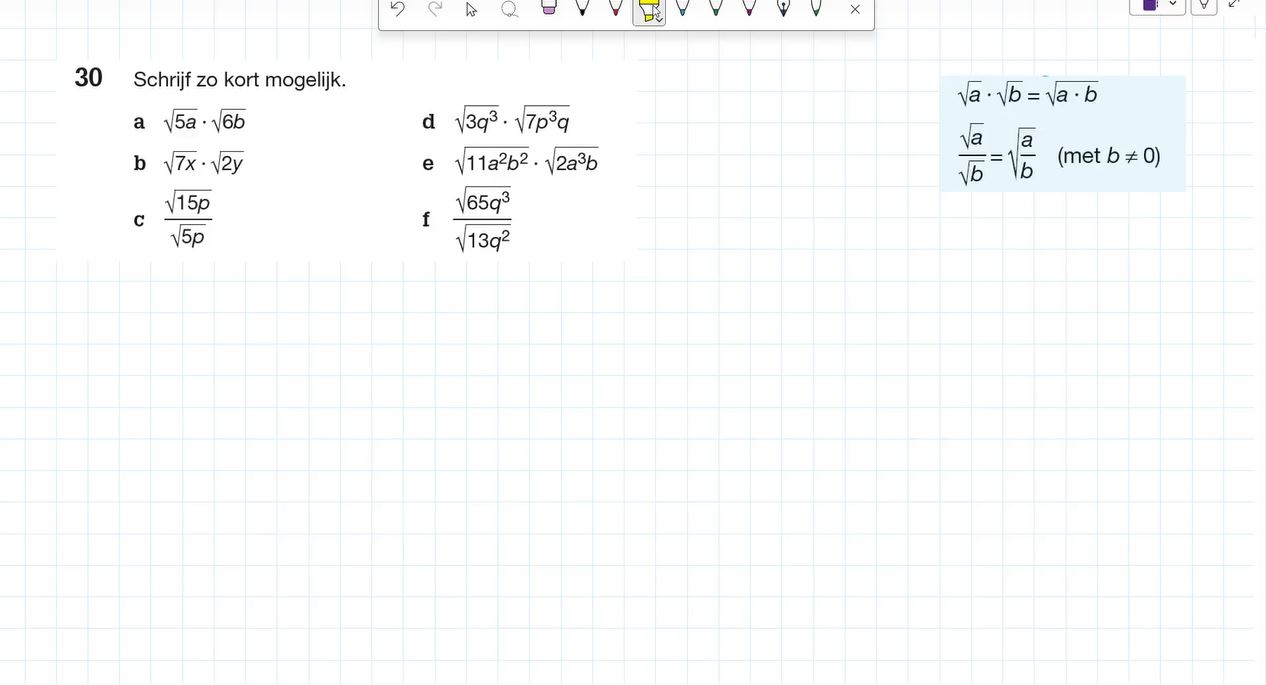 30 Schrijf zo kort mogelijk.
a √5a · √6b
b √7x · √2y
c √15p / √5p
d √3q³ · √7p³q
e √11a²b² · √2a³b
f √65q³ / √13q²
√a · √b = √a · b
√a / √b = √a/b (met b ≠ 0)